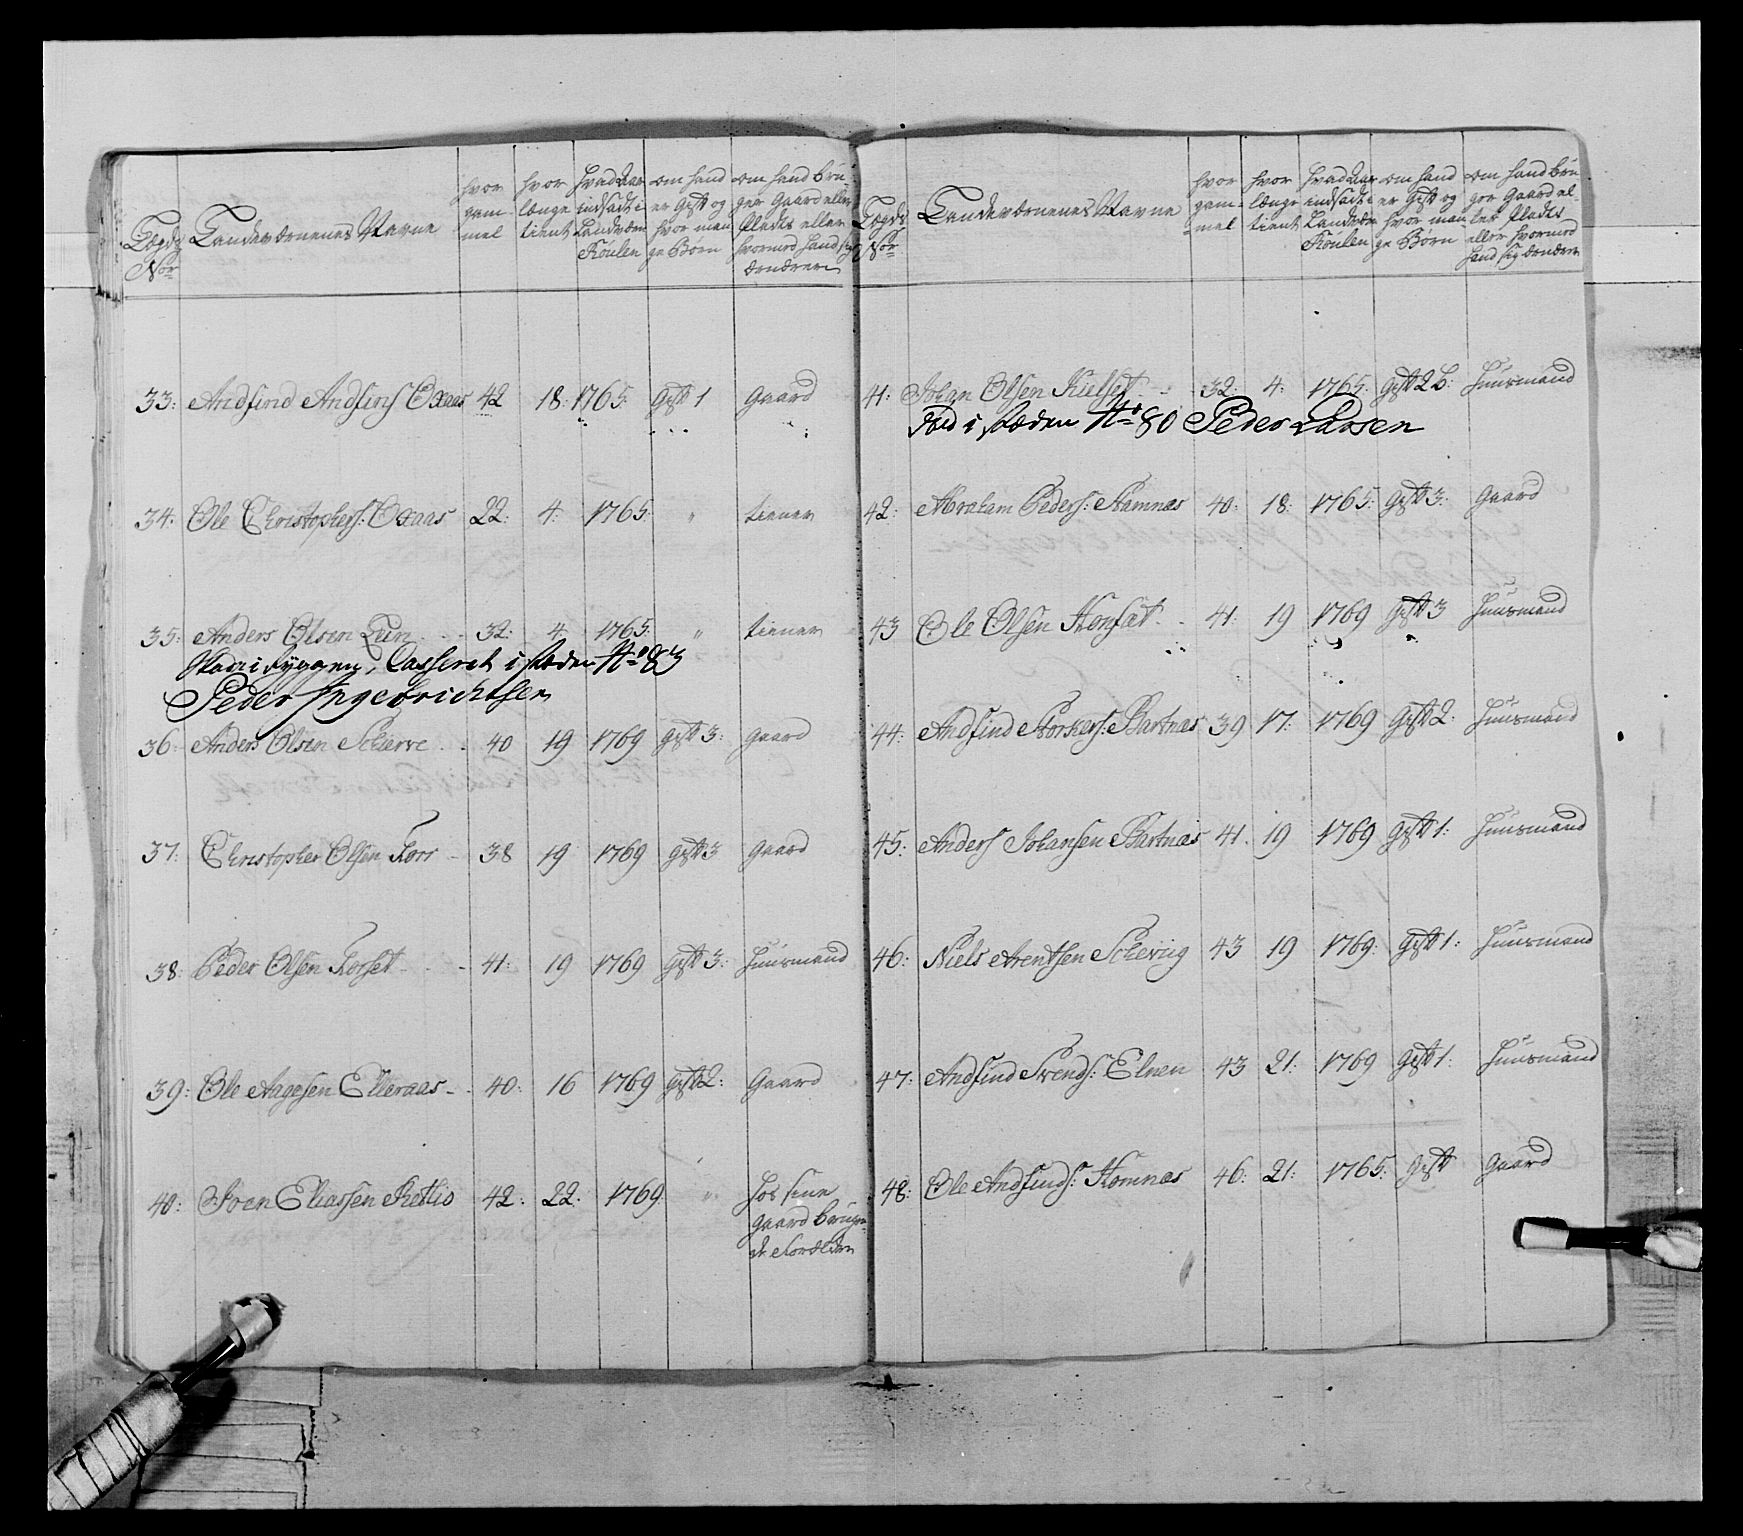 Lægds Nor
Landeværnenes Navne
hvor gam- mel
hvor længe tient
hvad Aar indsadt i Landværn Roulen
om hand er Gift og hvor man ge Børn
om hand bru- ger Gaard eller Plads eller hvormed hand sig ernærer
33: Andfind Andfins Oxaas 42 18: 1765: Gift 1 Gaard
34: Ole Christophers: Oxaas 22: 4: 1765: " tiener
35: Anders Olsen Lun 32: 4 1765: " tiener
i Ryggen, Casseret i stæden No 83
Peder Ingebrichtsen
36: Anders Olsen Schierve 40 19 1769 Gift 3: Gaard
37: Christopher Olsen Korr 38 19 1769 Gift 3 Gaard
38: Peder Olsen Korset 41: 19 1769 Gift 3: Huusmand
39: Ole Aagesen Elleraas 40: 16 1769 Gift 2: Gaard
40: Sven Eliassen 42: 22: 1769: " hos sine
gaard brugen-
de Forældre
Lægds Nor
Landeværnenes Navne
hvor gam- mel
hvor længe tient
hvad Aar indsadt i Landværn Roulen
om hand er Gift og hvor man ge Børn
om hand bru ger Gaard el- ler Plads eller hvormed hand sig ernærer
41: Johan Olsen 32: 4: 1765: Gift 2 b: Huusmand
i stæden No 80 Peder Larsen
42: Abraham Peders: Hamnæs 40: 18: 1765: Gift 3: Gaard
43 Ole Olsen 41: 19 1769 Gift 3 Huusmand
44: Andfind Storkers: Bartnæs 39 17: 1769 Gift 2: Huusmand
45: Anders Johansen Bartnæs 41. 19 1769 Gift 1: Huusmand
46: Niels Arentsen Scheviig 43 19 1769: Gift 1: Huusmand
47: Andfind Svends: Elnen 43 21: 1769 Gift 1: Huusmand
48: Ole Andfinds: Homnæs 46: 21: 1765: Gift Gaard